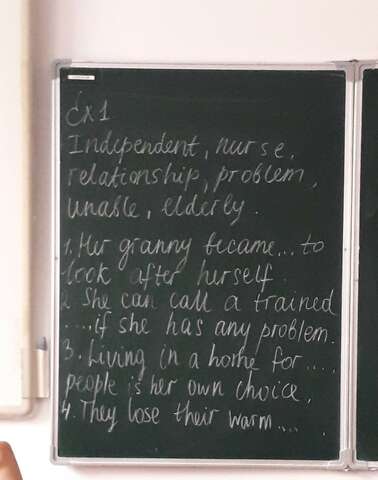 Ex1
Independent, nurse,
relationship, problem,
unable, elderly.
1. Her granny became... to
look after herself.
2. She can call a trained
.... if she has any problem.
3. Living in a home for....
people is her own choice.
4. They lose their warm....